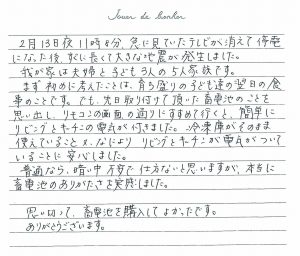 Jouer de bonheur
2月13日夜11時8分、急に見ていたテレビが消えて停電
になった後、すぐ長くて大きな地震が発生しました。
我が家は夫婦と子ども3人の5人家族です。
まず初めに考えたことは、育ち盛りの子ども達の翌日の食
事のことです。でも、先日取り付けて頂いた畜電池のことを
思い出し、リモコンの画面の通りにすすめて行くと、簡単に
リビングとキッチンの電気が付きました。冷凍庫がそのまま
使えていること、なによりリビングとキッチンが電気がついて
いることに安心しました。
普通なら、暗い中不安で仕方ないと思いますが、本当に
畜電池のありがたさを実感しました。
思い切って、畜電池を購入してよかったです。
ありがとうございます。